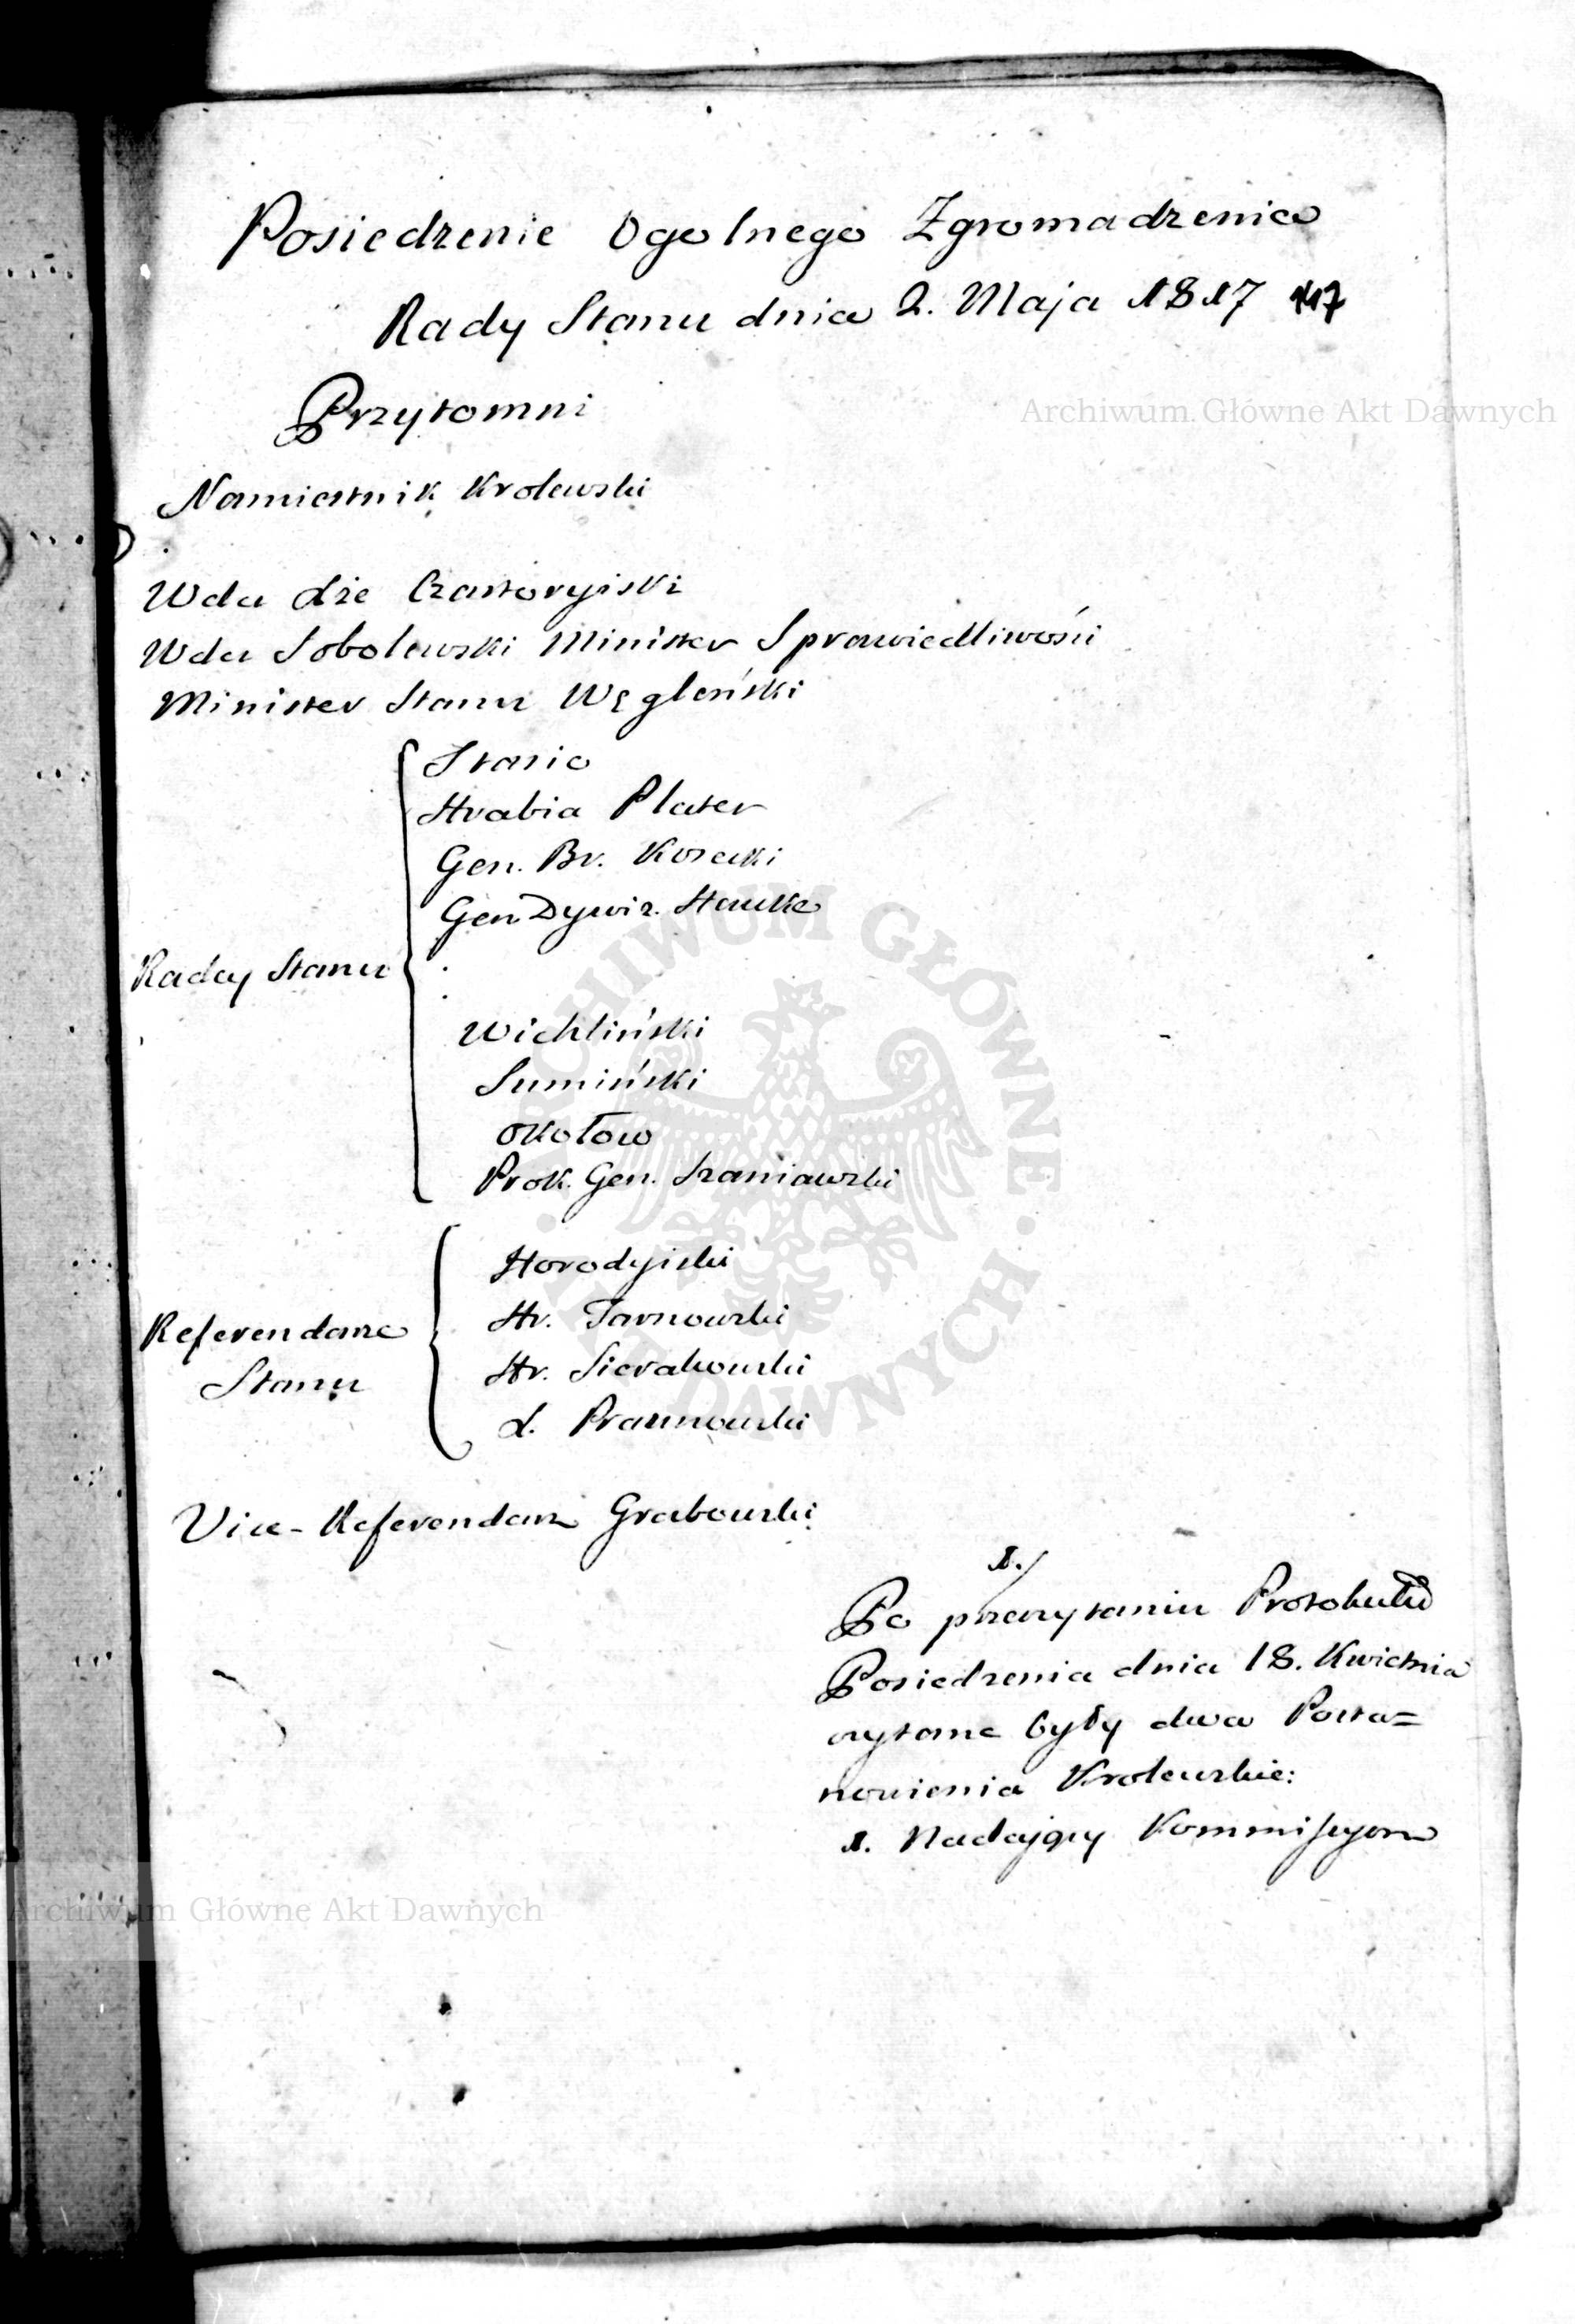 Posiedzenie Ogolnego Zgromadzenia
Rady Stanu dnia 2. Maja 1817 147
Przytomni
Archiwum Główne Akt Dawnych
Namiestnik Krolewski
Wda Xże Czartoryiski
Wda Sobolewski Minister Sprawiedliwości
Minister Stanu Węgleński
Radcy Stanu
Stasic
Hrabia Plater
Gen. Br. Kosecki
Gen Dywiz. Hauke
Wichliński
Sumiński
Okołow
Prok. Gen. Szaniawski
Referendarze
Stanu
Horodyiski
Hr. Tarnowski
Hr. Sierakowski
X. Prazmowski
Vice-Referendarz Grabowski
1./
Po przeczytaniu Protokułu
Posiedzenia dnia 18. Kwietnia
czytane były dwa Posta=
nowienia Krolewskie:
1. Nadający Kommissyom
Archiwum Główne Akt Dawnych
ARCHIWUM GŁÓWNE · AKT DAWNYCH ·